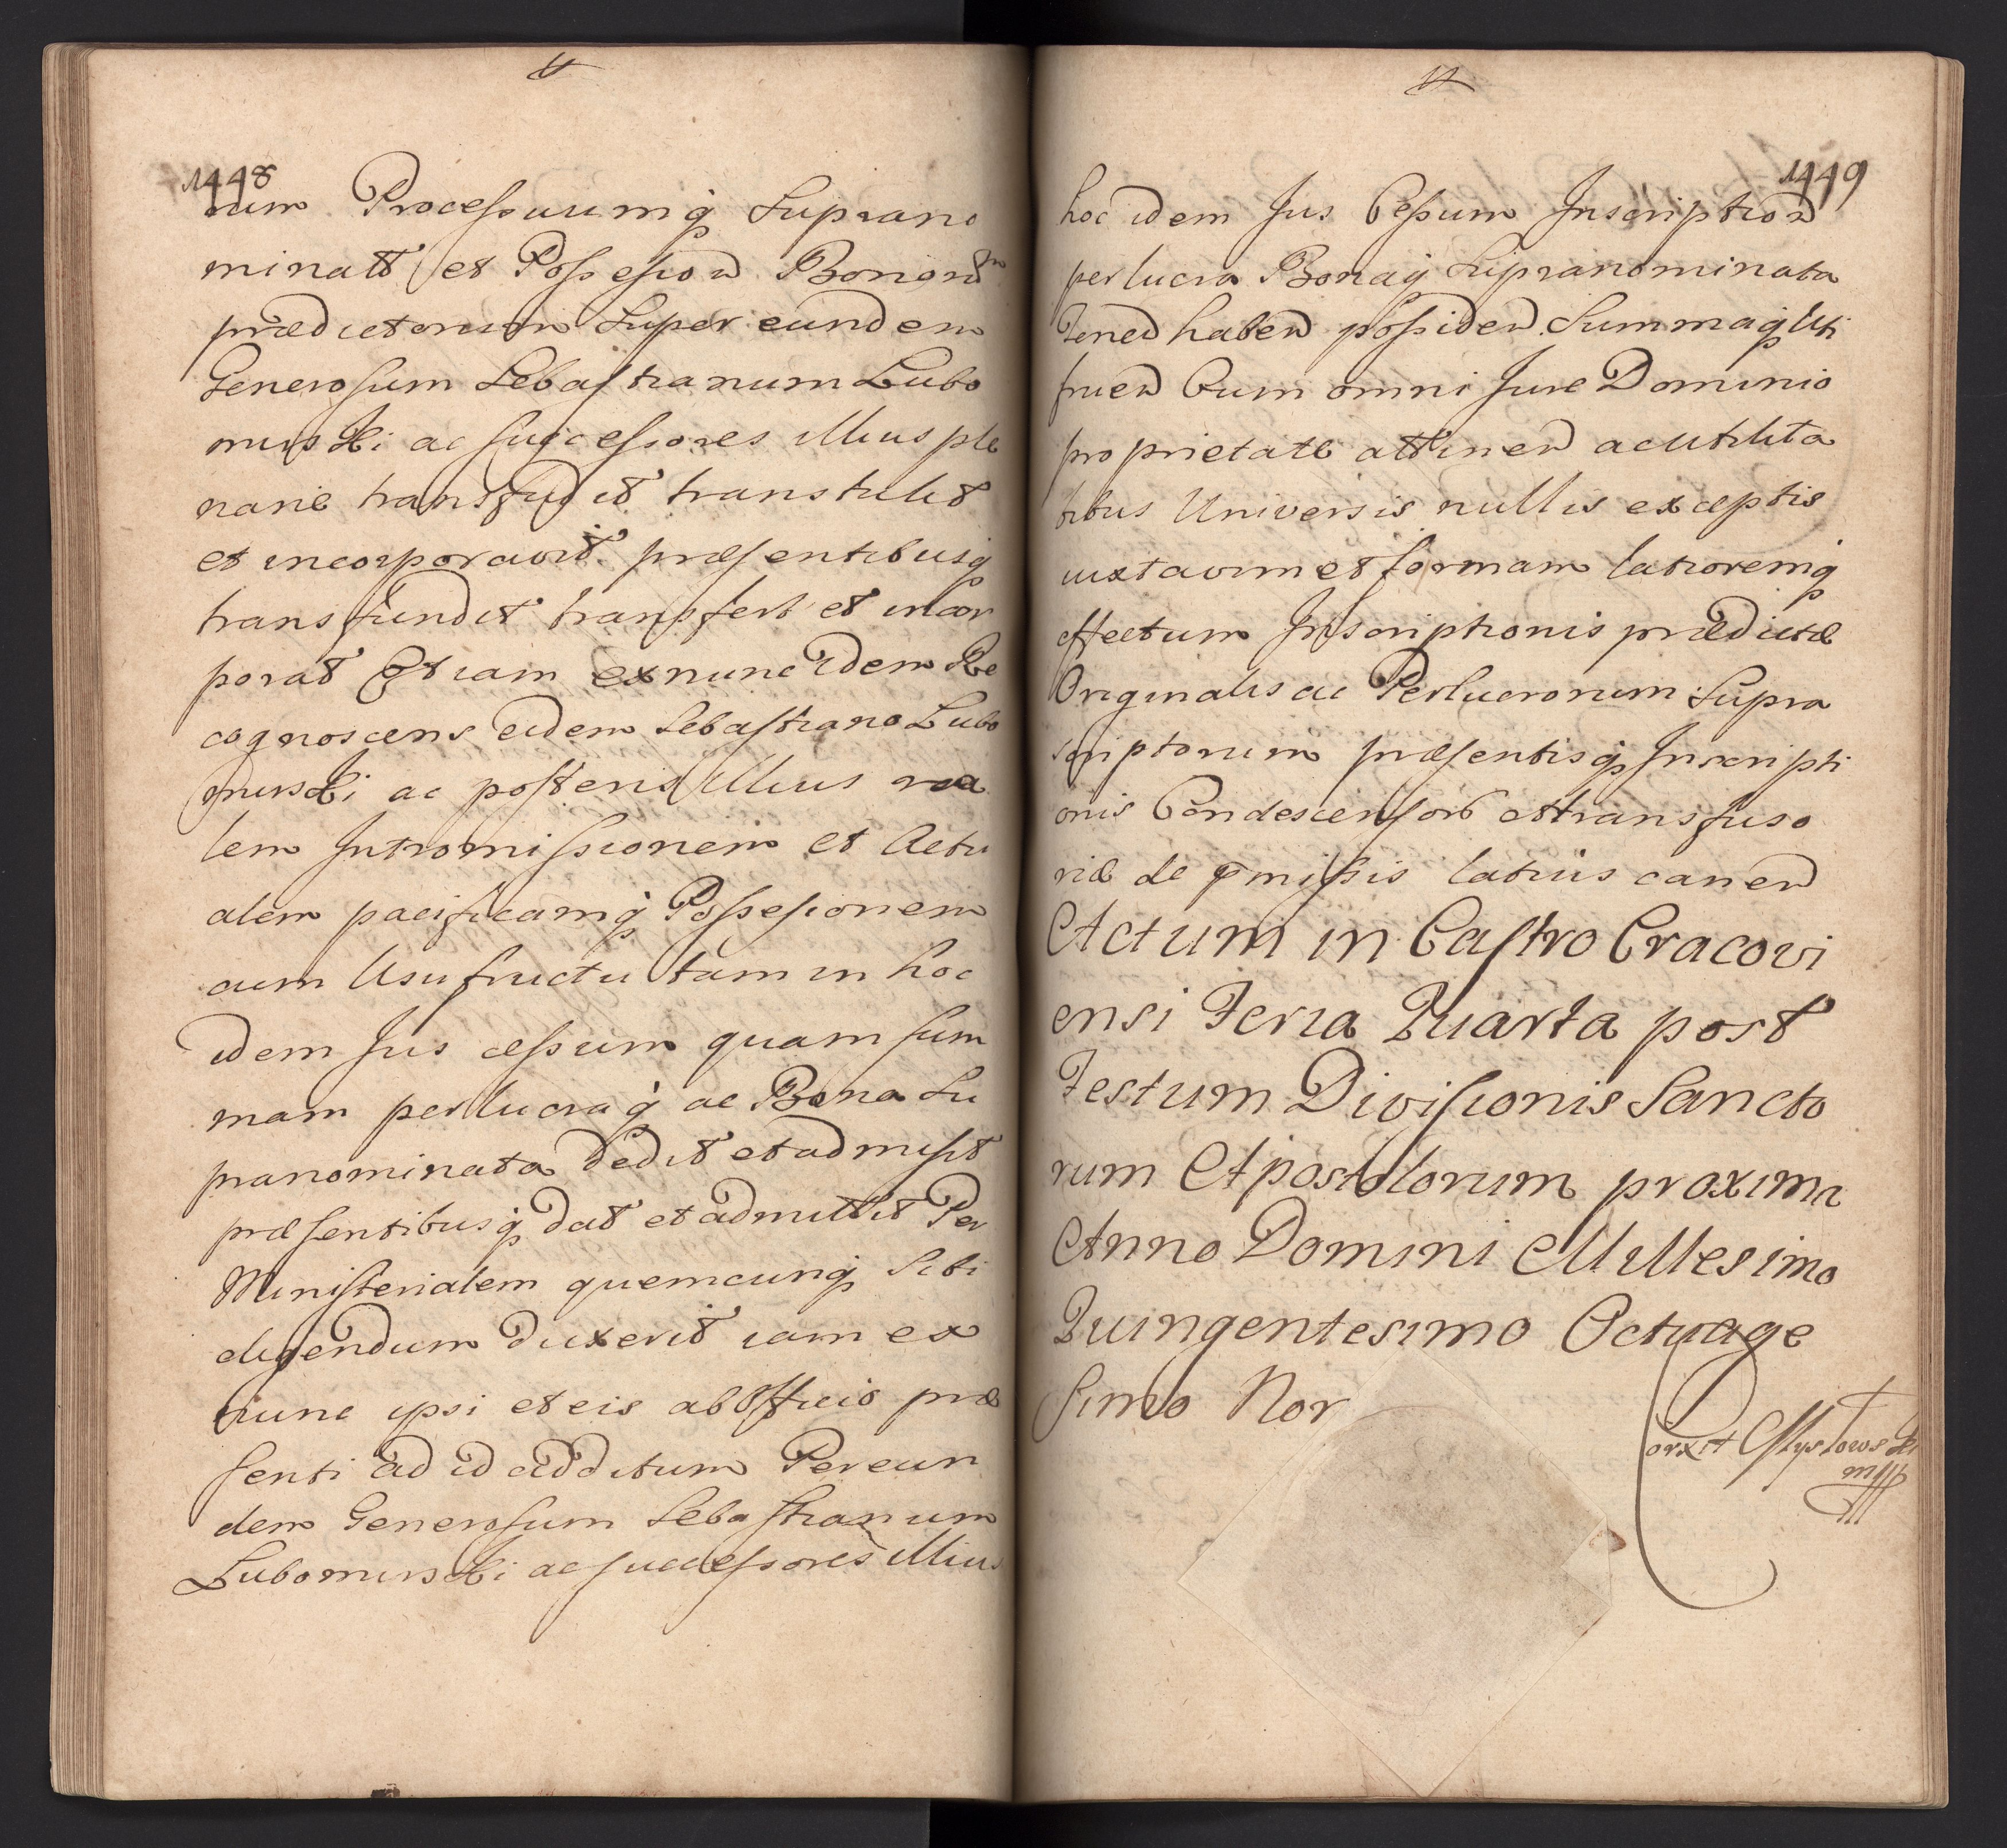 1448
rum Processuumq̃ Suprano
minatt et Possession Bonorum
prædictorum Super eundem
Generosum Sebastianum Lubo
mirski ac successores illius ple
nariè transfudit transtulit
et incorporavit præsentibusq̃
transfundit transfert et incor
porat Et iam ex nunc idem Re
cognoscens eidem Sebastiano Lubo
mirski ac posteris illius rea
lem Intromissionem et Actu
alem pacificamq̃ Possessionem
cum Usufructu tam in hoc
idem Jus cessum quam sum
mam perlucraq̃ ac Bona Su
pranominata dedit et admisit
præsentibusq̃ dat et admittit Per
Ministerialem quemcunq̃ Sibi
eligendum duxerit iam ex
nunc ipsi et eis ab Officio præ
senti ad id additum Per eun
dem Generosum Sebastianum
Lubomirski ac successores illius
1449
hoc idem Jus Cessum Inscription
perlucra Bonaq̃ Supranominata
Tened haben possiden Summaq̃ Uti
fruen Cum omni Jure Dominio
proprietate attinen ac utilita
tibus Universis nullis exceptis
iuxta vim et formam latioremq̃
effectum Inscriptionis prædictæ
Originalis ac Perlucrorum Supra
scriptorum præsentisq̃ Inscripti
onis Condescensoriæ et transfuso
riæ de p̃missis latius canen
Actum in Castro Cracovi
ensi Feria Quarta post
Festum Divisionis Sancto
rum Apostolorum proxima
Anno Domini Millesimo
Quingentesimo Octuage
Simo Nor
Corxit
mpp